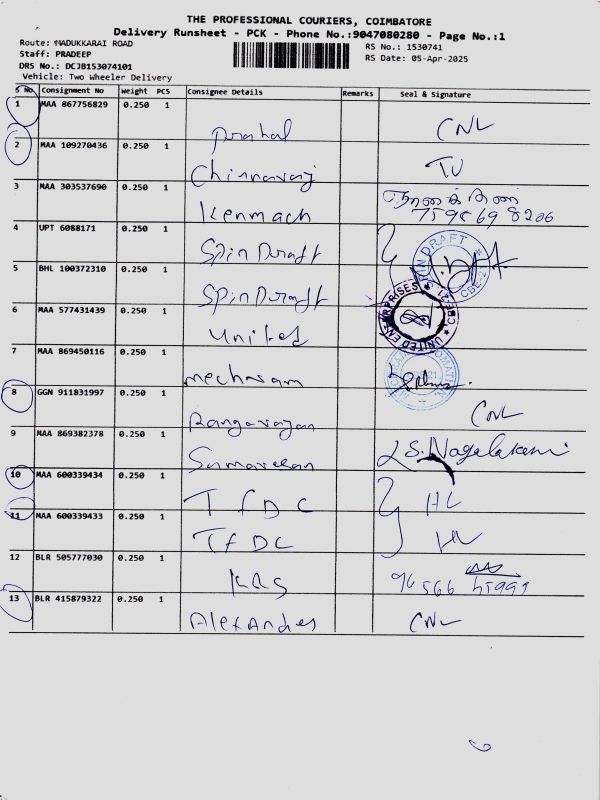 THE PROFESSIONAL COURIERS, COIMBATORE
Delivery Runsheet - PCK - Phone No.:9047080280 - Page No.:1
Route: MADUKKARAI ROAD
RS No.: 1530741
Staff: PRADEEP
RS Date: 05-Apr-2025
DRS No.: DCJB153074101
Vehicle: Two Wheeler Delivery
S No. Consignment No Weight PCS Consignee Details Remarks Seal & Signature
1 MAA 867756829 0.250 1
Prahal CNL
2 MAA 109270436 0.250 1
Chinnavaraj TU
3 MAA 303537690 0.250 1
Kenmach 75956 98206
4 UPT 6088171 0.250 1
Spin Draft
5 BHL 100372310 0.250 1
Spin Draft
6 MAA 577431439 0.250 1
United UNITED ENTERPRISES CBE-21
7 MAA 869450116 0.250 1
mechasam
8 GGN 911831997 0.250 1
Rangarajan CNL
9 MAA 869382378 0.250 1
Sumaresan S. Nagalakshmi
10 MAA 600339434 0.250 1
TfDC HL
11 MAA 600339433 0.250 1
TfDC HL
12 BLR 505777030 0.250 1
KRS
13 BLR 415879322 0.250 1
Alexandes CNL